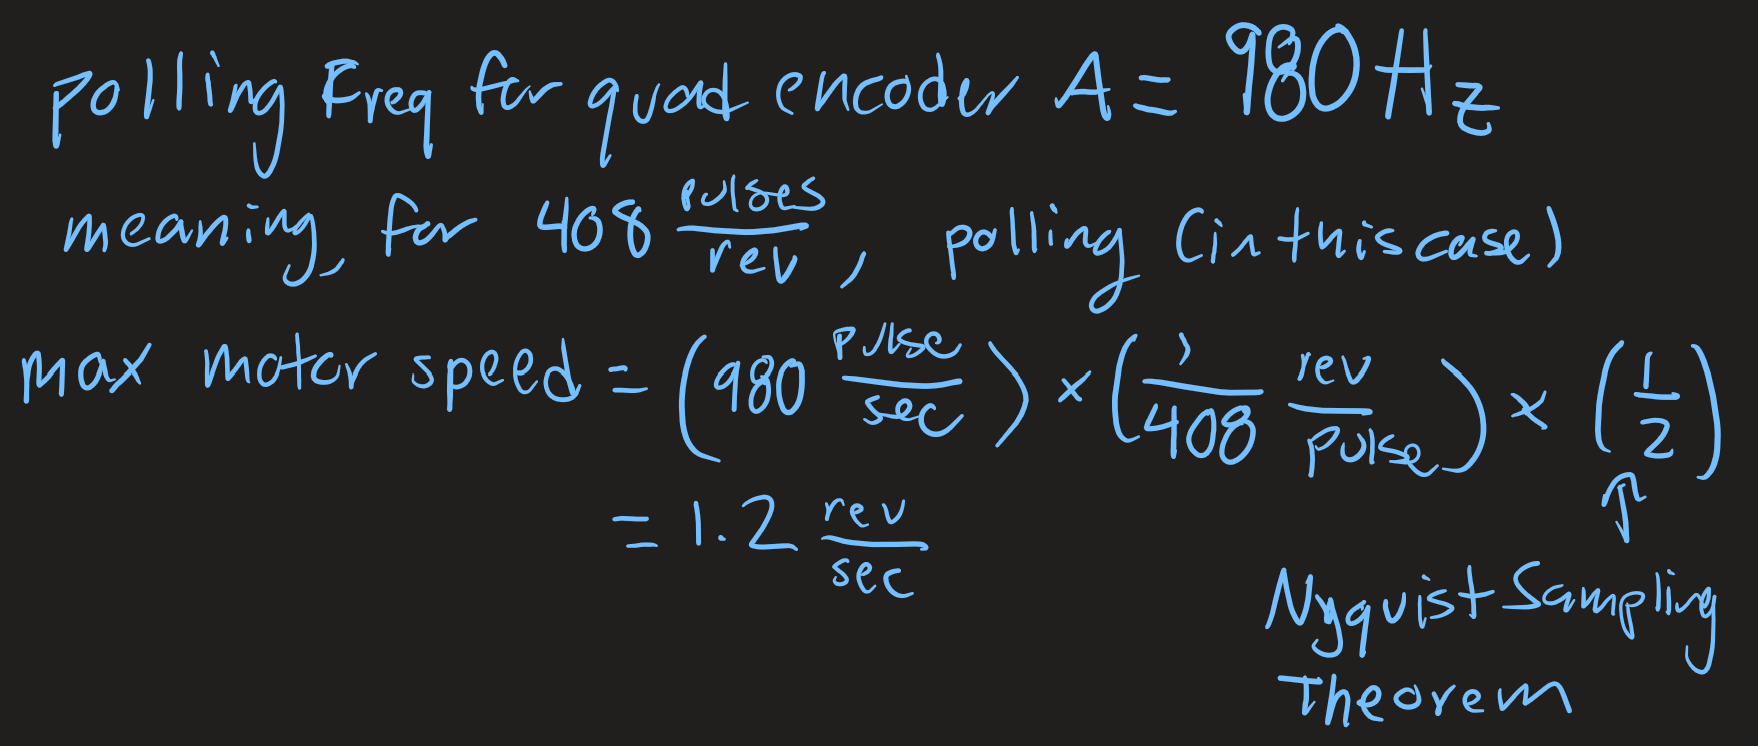 polling Freq for quad encoder A = 980 Hz
meaning, for 408 pulses/rev, polling (in this case)
max motor speed = (980 pulse/sec) × (1/408 rev/pulse) × (1/2)
= 1.2 rev/sec
↑
Nyquist Sampling
Theorem